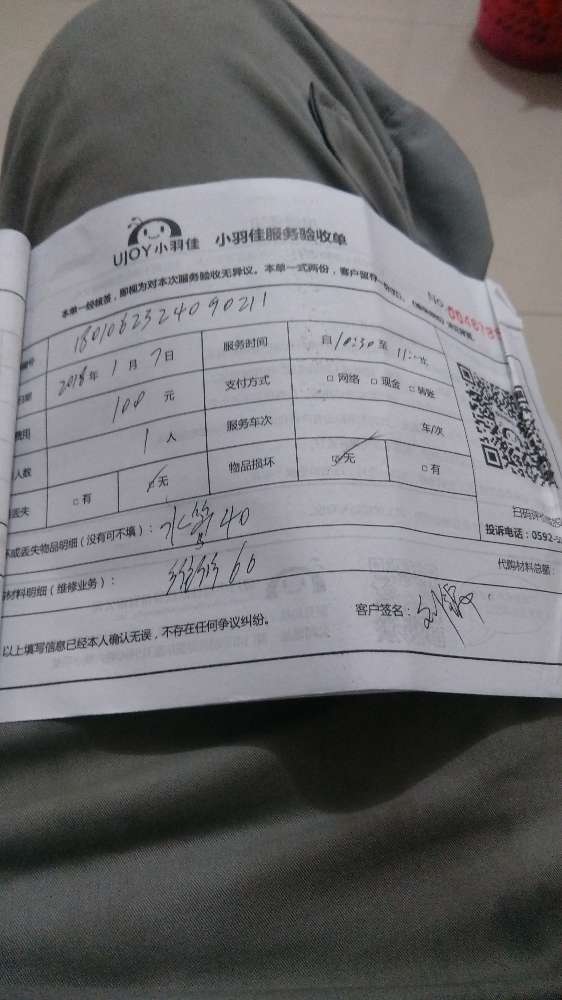 UJOY小羽佳 小羽佳服务验收单
本单一经核签，即视为对本次服务验收无异议。本单一式两份，客户留存
NO
编号 1801062324090211
日期 2018年1月7日 服务时间 自10:30至11:
费用 100元 支付方式 □网络 □现金 □转账
人数 1人 服务车次 车/次
丢失 □有 □无 物品损坏 □无 □有
坏或丢失物品明细（没有可不填）：水管40
材料明细（维修业务）： 60
扫码评价
投诉电话：0592-5
代购材料总额：
以上填写信息已经本人确认无误，不存在任何争议纠纷。 客户签名：